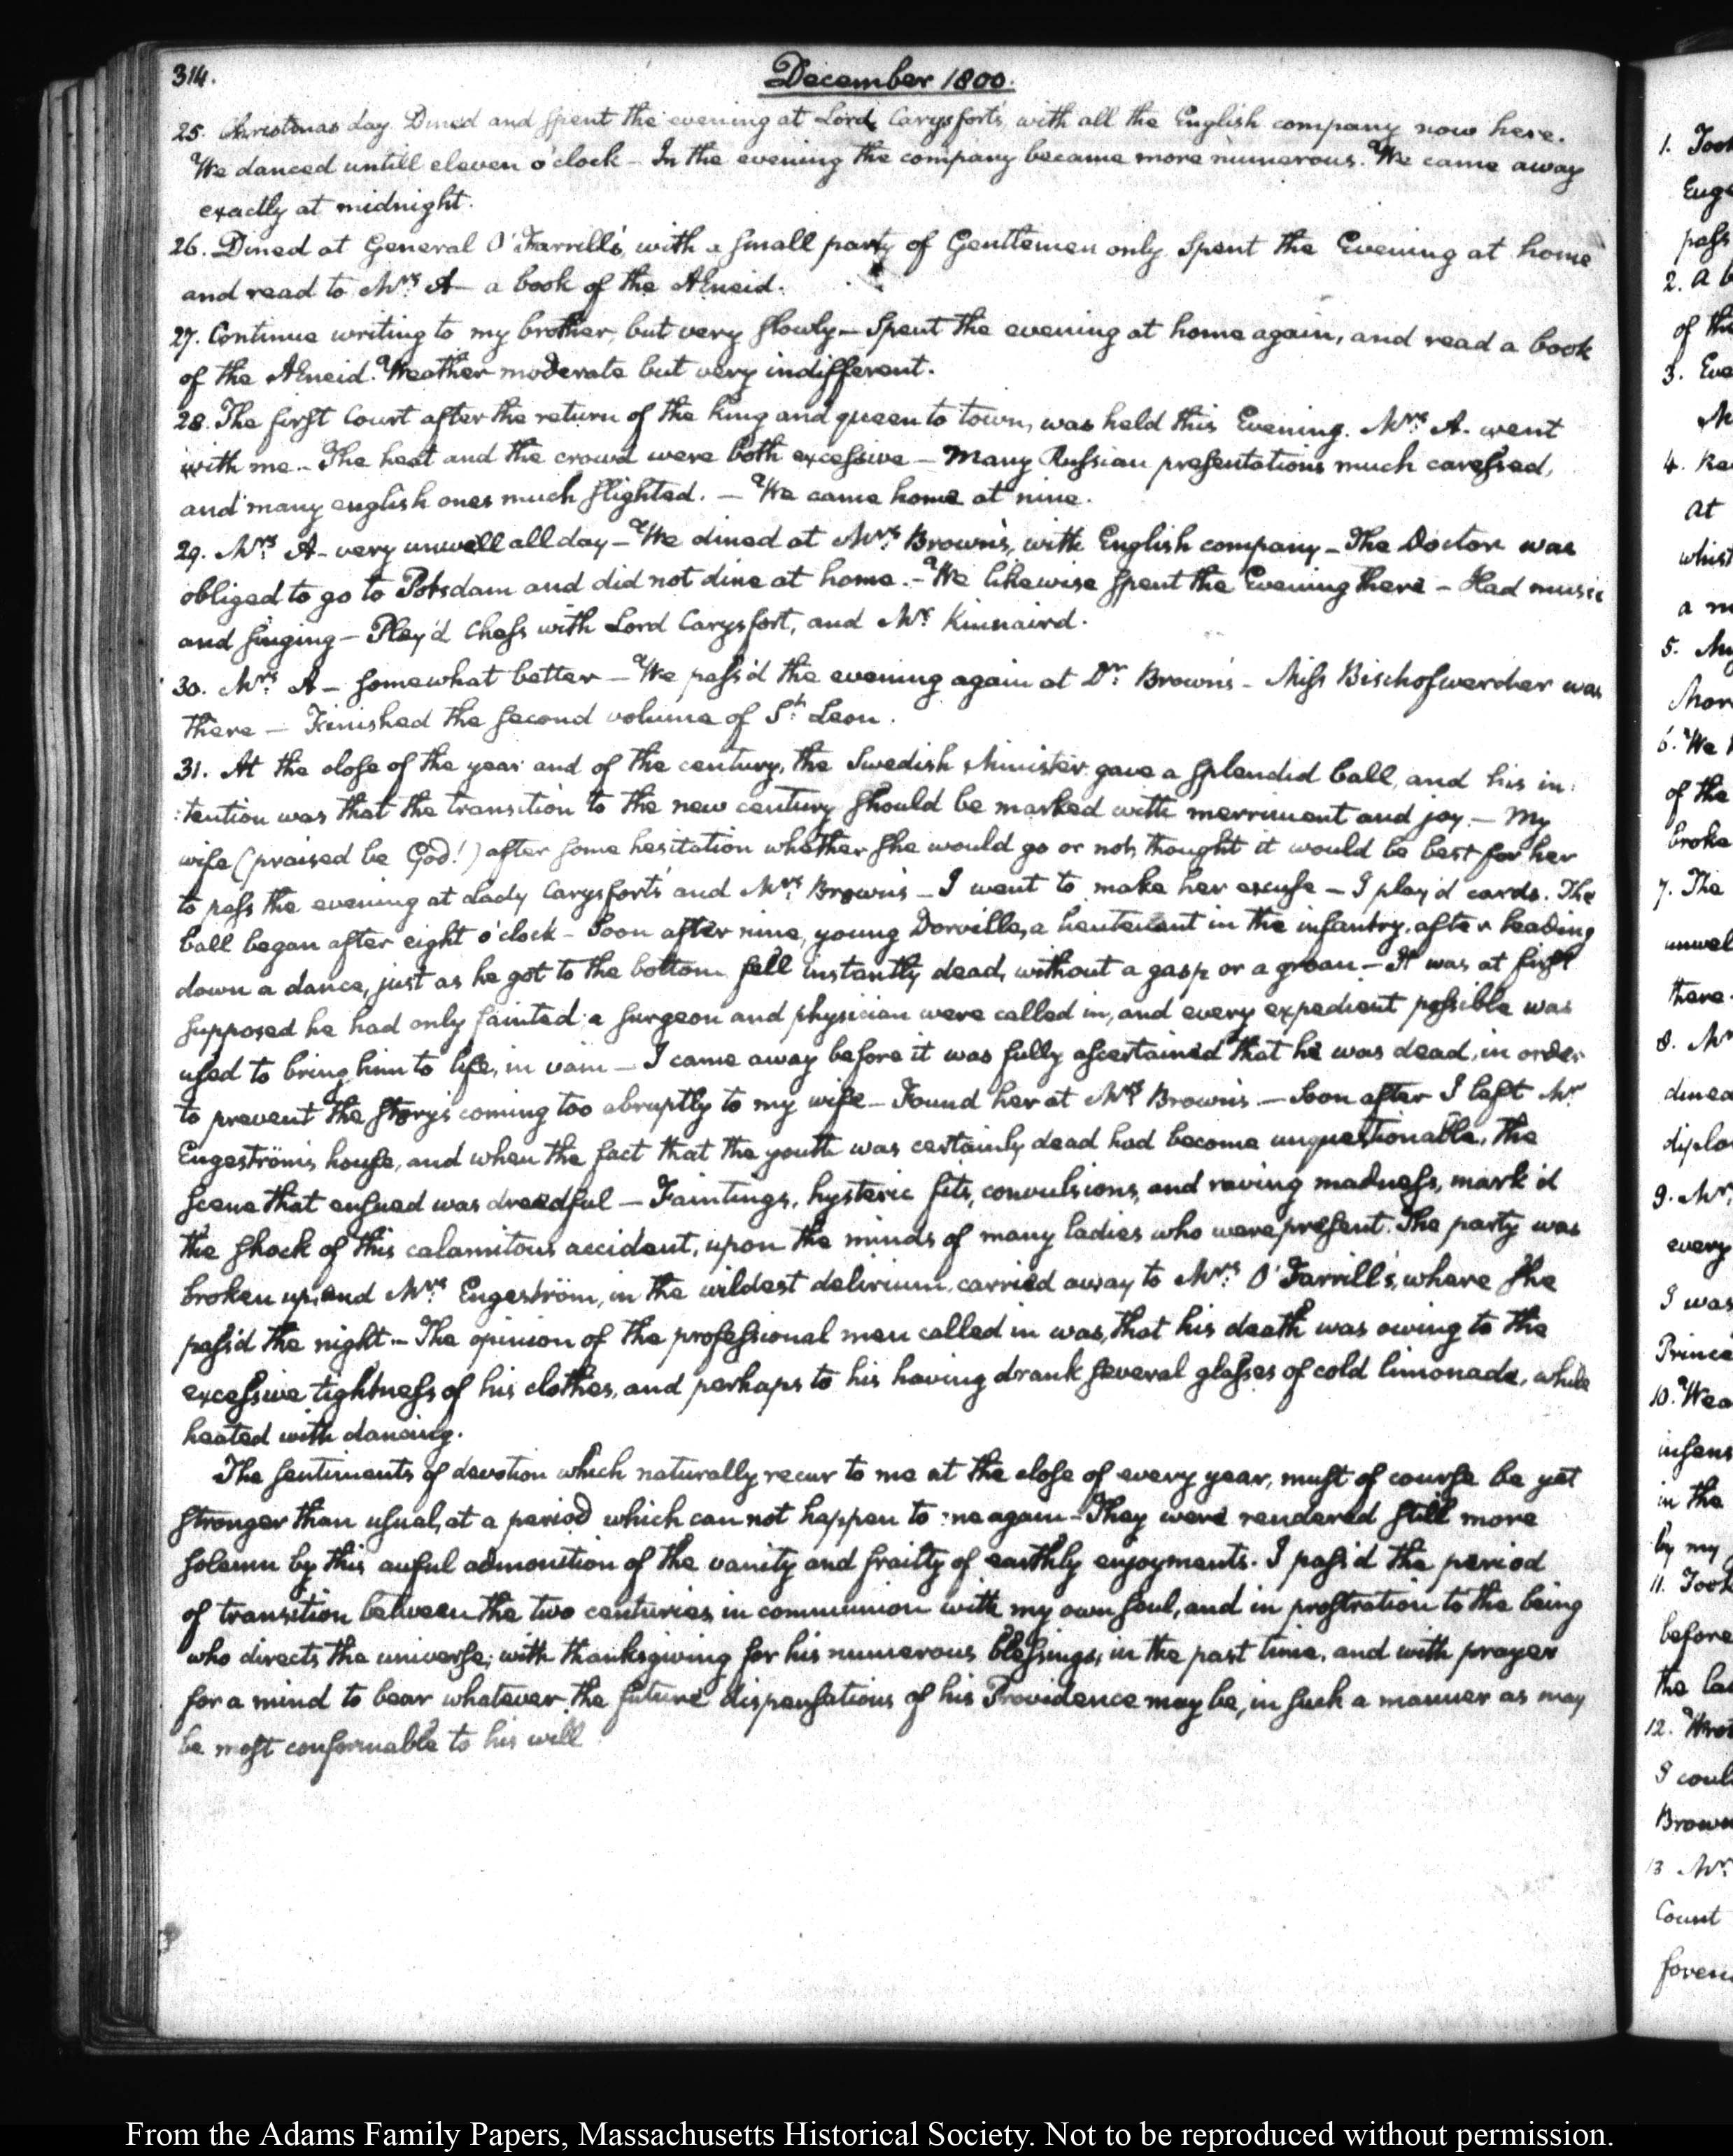 314.
December 1800.
25. Christmas day. Dined and spent the evening at Lord Carysfort's, with all the English company now here.
We danced untill eleven o'clock – In the evening the company became more numerous. We came away
exactly at midnight.
26. Dined at General O'Farrill's, with a small party of Gentlemen only. Spent the Evening at home
and read to Mrs. A– a book of the Æneid.
27. Continue writing to my brother, but very slowly – Spent the evening at home again, and read a book
of the Æneid. Weather moderate but very indifferent.
28. The first Court after the return of the king and queen to town, was held this Evening. Mrs. A. went
with me. – The heat and the crowd were both excessive – Many Russian presentations much caressed,
and many english ones much slighted. – We came home at nine.
29. Mrs. A– very unwell all day – We dined at Mrs. Brown's, with English company – The Doctor was
obliged to go to Potsdam and did not dine at home. – We likewise spent the Evening there – Had music
and singing – Play'd Chess with Lord Carysfort, and Mr. Kinnaird.
30. Mrs. A– somewhat better – We pass'd the evening again at Dr. Brown's – Miss Bischofwerder was
there – Finished the second volume of St. Leon.
31. At the close of the year and of the century, the Swedish Minister gave a splendid ball, and his in:
:tention was that the transition to the new century should be marked with merriment and joy. – My
wife (praised be God!) after some hesitation whether she would go or not, thought it would be best for her
to pass the evening at Lady Carysfort's and Mrs. Brown's – I went to make her excuse – I play'd cards. The
ball began after eight o'clock – Soon after nine, young Dorville, a lieutenant in the infantry, after leading
down a dance, just as he got to the bottom fell instantly dead, without a gasp or a groan – It was at first
supposed he had only fainted; a surgeon and physician were called in, and every expedient possible was
used to bring him to life, in vain – I came away before it was fully ascertained that he was dead, in order
to prevent the story's coming too abruptly to my wife – Found her at Mrs. Brown's – Soon after I left Mr.
Engeström's house, and when the fact that the youth was certainly dead had become unquestionable, the
scene that ensued was dreadful – Faintings, hysteric fits, convulsions, and raving madness, mark'd
the shock of this calamitous accident, upon the minds of many ladies who were present. The party was
broken up, and Mrs. Engeström, in the wildest delirium, carried away to Mrs. O'Farrill's, where she
pass'd the night – The opinion of the professional men called in was, that his death was owing to the
excessive tightness of his clothes, and perhaps to his having drank several glasses of cold limonade, while
heated with dancing.
The sentiments of devotion which naturally recur to me at the close of every year, must of course be yet
stronger than usual, at a period which can not happen to me again – They were rendered still more
solemn by this awful admonition of the vanity and frailty of earthly enjoyments. I pass'd the period
of transition between the two centuries, in communion with my own soul, and in prostration to the being
who directs the universe; with thanksgiving for his numerous blessings, in the past time, and with prayer
for a mind to bear whatever the future dispensations of his Providence may be, in such a manner as may
be most conformable to his will
From the Adams Family Papers, Massachusetts Historical Society. Not to be reproduced without permission.